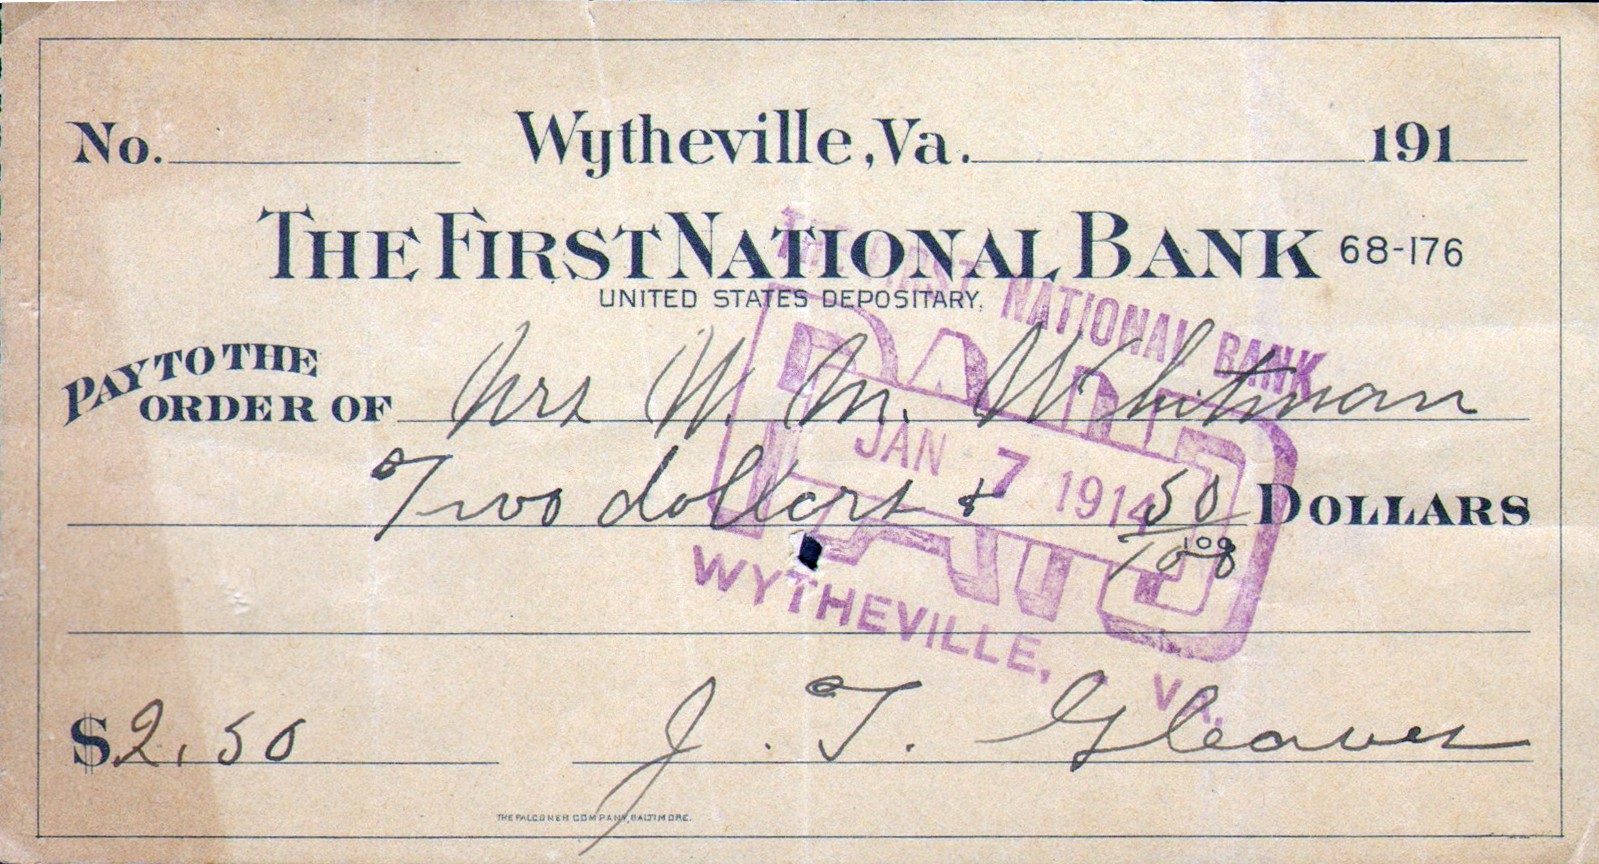 No. Wytheville, Va. 191
THE FIRST NATIONAL BANK 68-176
UNITED STATES DEPOSITARY.
PAY TO THE
ORDER OF Mrs W. M. Whitman
Two dollars & 50/100 DOLLARS
100
$2.50 J. T. Gleaves
THE FALCONER COMPANY, BALTIMORE.
THE FIRST NATIONAL BANK
PAID
JAN 7 1914
WYTHEVILLE, VA.